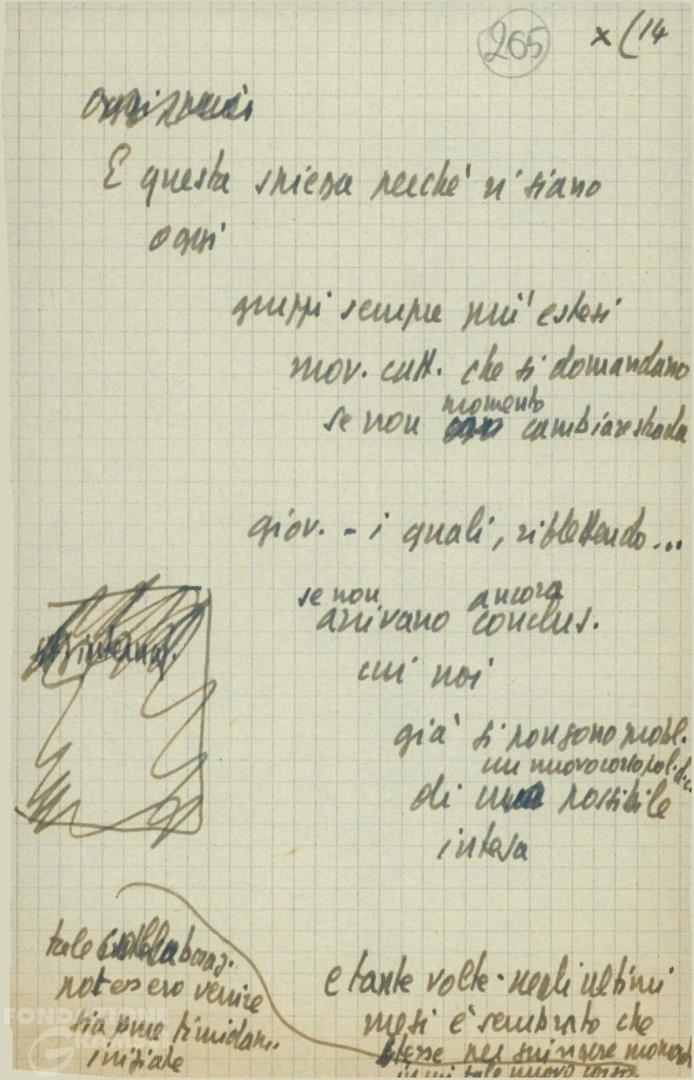 265 x (14
E questa spiega perché vi siano
oggi
gruppi sempre più estesi
mov. catt. che si domandano
momento
se non cambiare strada
giov. - i quali, riflettendo...
se non ancora
arrivano conclus.
cui noi
già si pongono probl.
un nuovo corso pol.
di possibile
intesa
tale collaboraz.
potessero venire
sia pure timidam.
iniziate
e tante volte - negli ultimi
mesi è sembrato che
stesse per spingere
in un tale nuovo corso.
FONDAZIONE
GRAMSCI